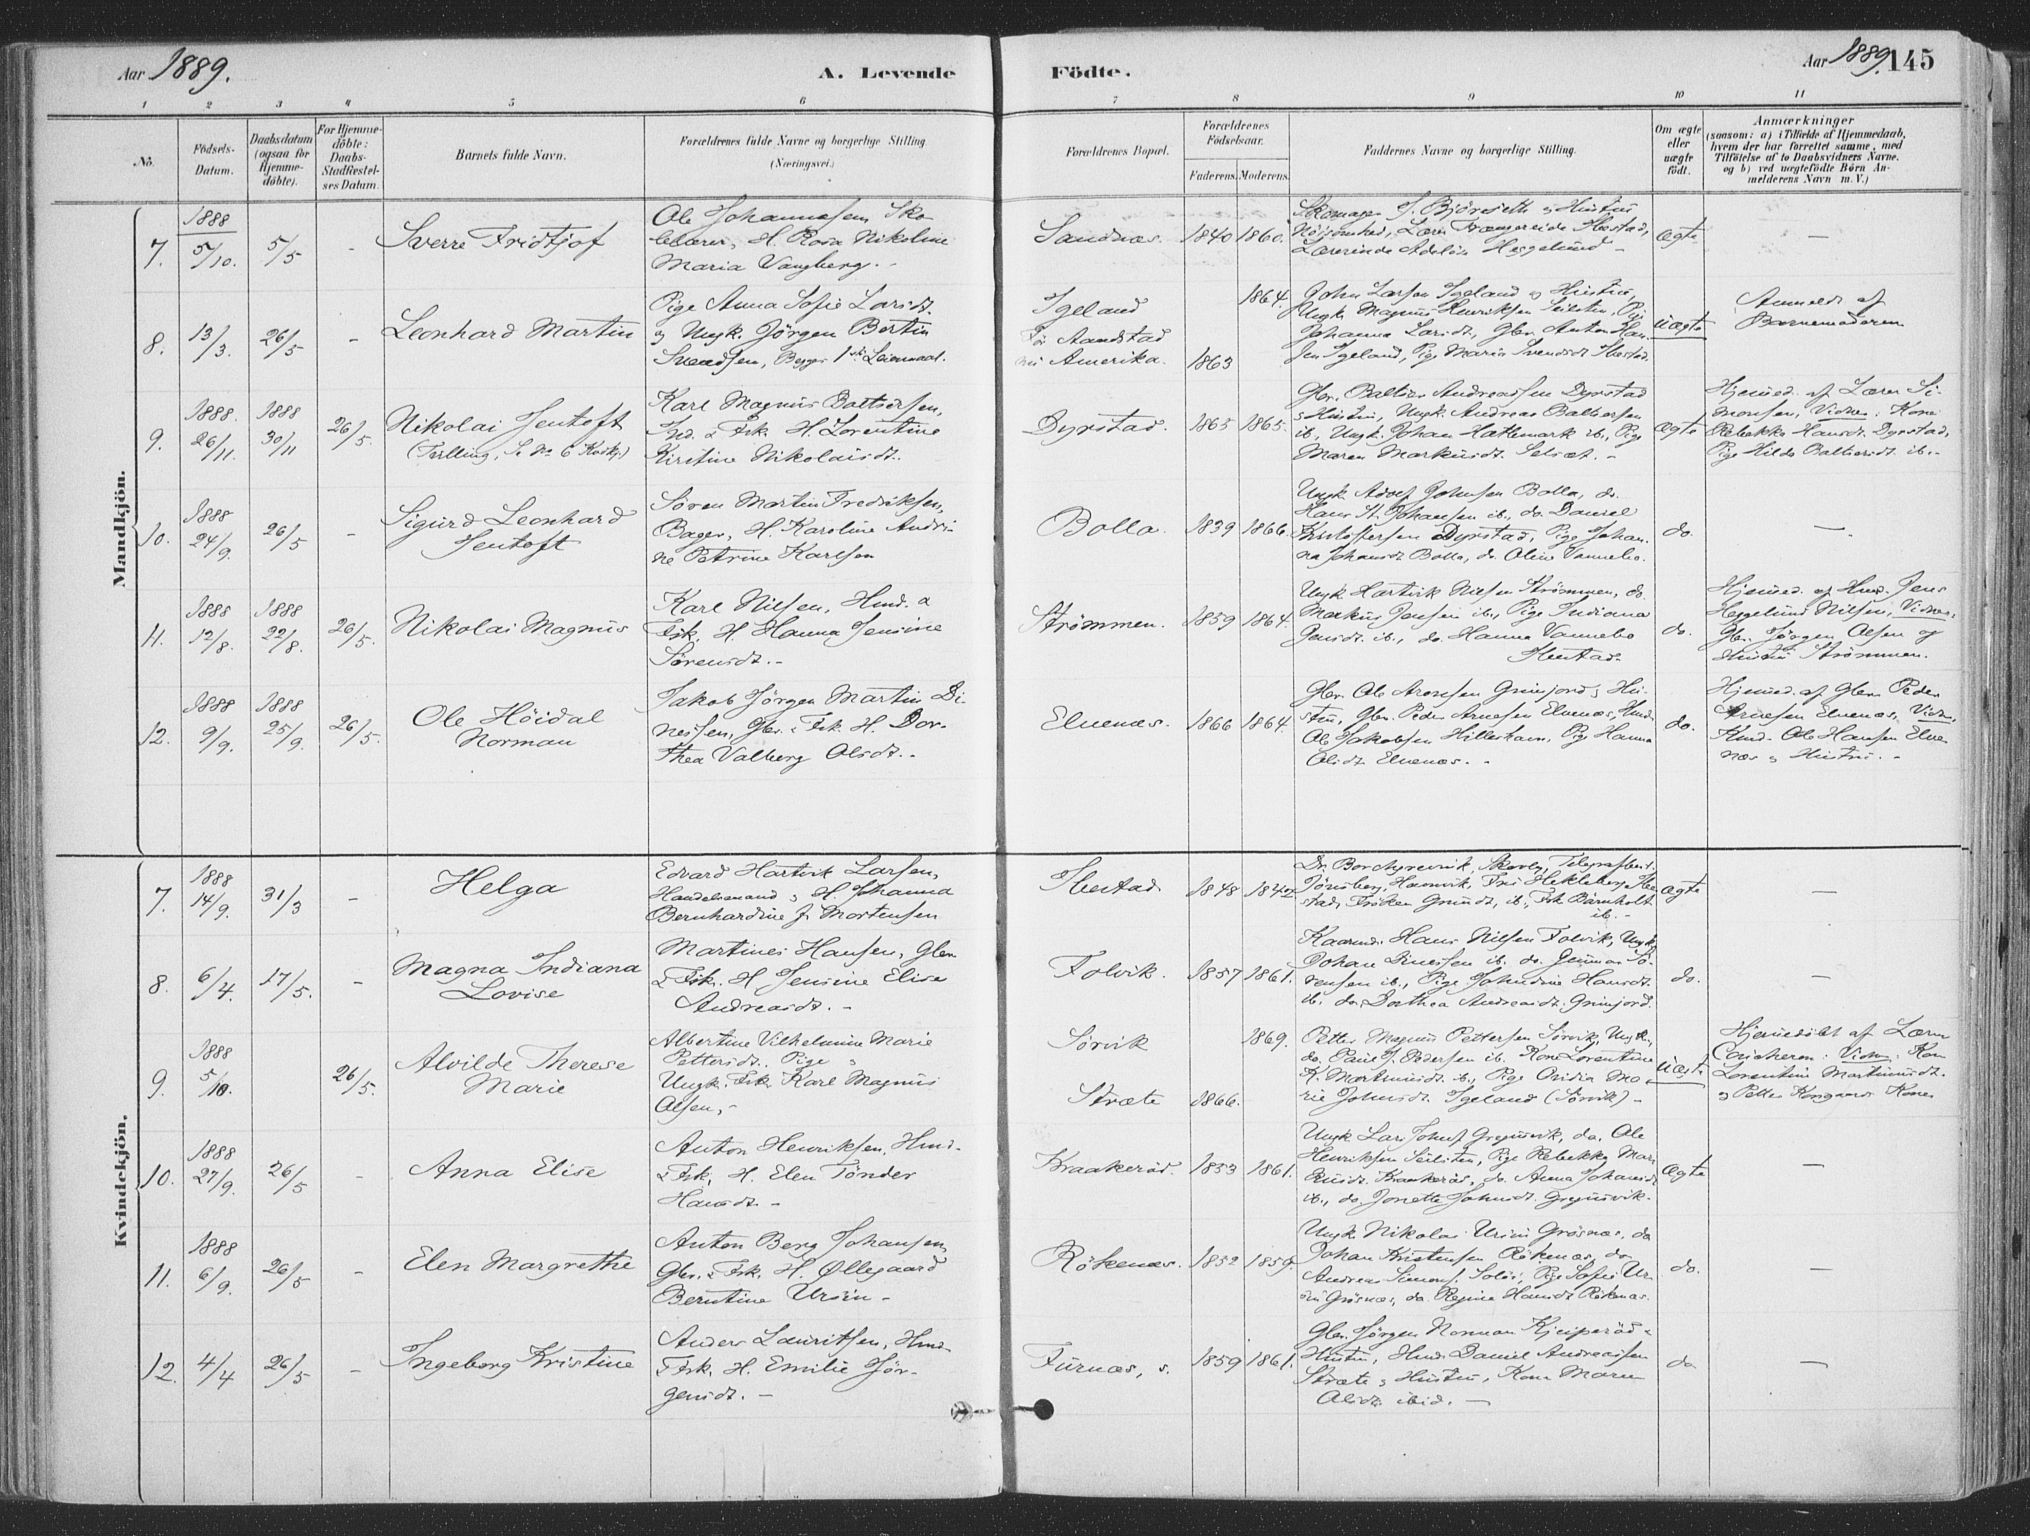 Aar 1889.
A. Levende
Födte.
Aar 1889.
145
1 2 3 4 5 6
7 8 9 10 11
No.
Födsels-
Datum.
Daabsdatum
(ogsaa for
Hjemme-
döbte).
For Hjemme-
döbte:
Daabs-
Stadfæstel-
ses Datum.
Barnets fulde Navn.
Forældrenes fulde Navne og borgerlige Stilling
(Næringsvei.)
Forældrenes Bopæl.
Forældrenes
Födselsaar.
Faderens. Moderens.
Faddernes Navne og borgerlige Stilling.
Om ægte
eller
uægte
födt.
Anmærkninger
(saasom: a) i Tilfælde af Hjemmedaab,
hvem der har forrettet samme, med
Tilföielse af to Daabsvidners Navne.
og b) ved uægtefödte Börn An-
melderens Navn m. V.)
Mandkjön.
7.
1888
5/10.
5/5
-
Sverre Fridtjof
Ole Johannesen, Sko-
lelærer, H. Rosa Nikoline
Maria Vangberg. -
Sandnæs.
1840 1860.
Skomager J. Björseth & Hustru
Lærer Ibestad,
Lærerinde Heggelund -
Ægte
-
8.
13/3.
26/5
-
Leonhard Martin
Pige Anna Sofie Larsdt.
og Ungk. Jörgen Bertin
Svendsen, Begges 1ste Leiermaal.
Igeland
Aandstad
nu Amerika.
1864.
1863
John Larsen Igeland & Hustru,
Ungk Magnus Henriksen Pige
Johanna Larsdt, Gbr. Anton Han-
sen Igeland, Pige Maria Svendsdt Ibestad.
Uægte
Anmeldt af
Barnemoderen
9.
1888.
26/11.
1888
30/11
26/5.
Nikolai Jentoft
(Tvilling, Se No 6 Kvkj.)
Karl Magnus Baltsersen,
Ind. & Fsk. H. Lorentine
Kirstine Nikolaisdt.
Dyrstad.
1865 1865.
Gbr. Baltser Andreassen Dyrstad
& Hustru, Ungk Andreas Baltsersen
ib., Ungk. Johan Hattemark ib., Pige
Maren Markusdt. Selsæt. -
Ægte
Hjemmed. af Lærer Si-
monsen, Vidner: Kone
Rebekka Hansdt. Dyrstad,
Pige Hilda Baltsersdt. ib.-
10.
1888
24/9.
26/5
-
Sigurd Leonhard
Jentoft
Sören Martin Fredriksen,
Bager, H. Karoline Andri-
ne Petrine Karlsen
Bolla.
1839 1866.
Ungk Adolf Johnsen Bolla, do.
Hans St. Johansen ib., do. Daniel
Kristoffersen Dyrstad, Pige Johan-
na Johansdt Bolla, do. Oline Vannebo.
do.
-
11.
1888
12/8.
1888
22/8.
26/5.
Nikolai Magnus
Karl Nilsen, Hmd. &
Fsk. H. Hanna Jensine
Sörensdt. -
Strömmen.
1859 1864.
Ungk Hartvik Nilsen Strömmen, do.
Markus Jensen ib., Pige Indiana
Jensdt. ib., do. Hanna Vannebo
Ibestad.
do.
Hjemmed. af Hmd. Jens
Heggelund Nilsen, Vidner,
Gbr. Jörgen Olsen og
Hustru Strömmen.
12.
1888
9/9.
1888
25/9.
26/5.
Ole Höidal
Norman
Jakob Jörgen Martin Di-
nessen, Gbr. & Fsk. H. Dor-
thea Valborg Olsdt. -
Elvenæs.
1866 1864.
Gbr. Ole Aronsen Grinjord & Hu-
stru, Gbr. Peder Arnesen Elvenæs, Hmd.
Ole Jakobsen Hilleshavn, Pige Hanna
Olsdt. Elvenæs. -
do.
Hjemmed. af Gbr. Peder
Arnesen Elvenæs, Vidn.,
Hmd. Ole Hansen Elve-
næs & Hustru. -
Kvindekjön.
7.
1888
14/9.
31/3
-
Helga
Edvard Hartvik Larsen,
Handelsmand & H. Johanna
Bernhardine f. Mortensen
Ibestad.
1848 1847
Dr. Borchgrevink, Telegrafbest.
Tönsberg, Havnvik, Fru Ibe-
stad, Fröken Grundt, ib., Frk Barnholt
ib. -
Ægte
-
8.
6/4.
17/5.
-
Magna Indiana
Lovise
Martines Hansen, Gbr.
& Fsk. H. Jensine Elise
Andreasdt. -
Folvik.
1857 1861.
Hans Nilsen Folvik, Ungk
Johan Dinessen ib. do. Sö-
rensen ib., Pige Johndine Hansdt.
ib., do. Dorthea Andreasdt. Grinjord.
do.
-
9.
1888
5/10.
26/5.
Alvilde Therese
Marie
Albertine Vilhelmine Marie
Pettersdt. Pige &
Ungk. Fsk. Karl Magnus
Olsen, -
Sörvik
Stræte
1869.
1866.
Petter Magnus Pettersen Sörvik, Ungk.,
do. Paul J. Pedersen ib. Kone Lorentine
K. Martinusdt. ib., Pige Ovidia Ma-
rie Johnsdt Igeland (Sörvik) -
Uægte
Hjemmedöbt af Lærer
Vidn: Kone
Lorentine Martinusdt.
& Petter Kone
10.
1888
27/9.
26/5
-
Anna Elise
Anton Henriksen, Hmd.
& Fsk. H. Elen Tönder
Hansdt. -
Kraakeröd.
1853 1861.
Ungk Lars Johnsen do. Ole
Henriksen Pige Rebekka Mar-
kusdt. Kraakeröd, do. Anna Johansdt
ib., do. Jonette Johnsdt.
Ægte
-
11.
1888
6/9.
26/5
-
Elen Margrethe
Anton Berg Johansen,
Gbr. & Fsk. H. Øllegaard
Berntine Ursin -
Rökenæs.
1852 1859.
Ungk Nikolai Ursin Grösnæs, do
Johan Kristensen Rökenæs, do.
Andreas Simons. Pige Sofie Ur-
sin Grösnæs, do. Regine Hansdt Rökenæs.
do.
-
12.
4/4
26/5
-
Ingeborg Kristine
Anders Lauritsen, Hmd.
& Fsk. H. Emilie Jör-
gensdt. -
Furnæs, s.
1859 1861.
Gbr. Jörgen Norman Kjeiperöd &
Hustru, Hmd. Daniel Andreassen
Stræte & Hustru, Kone Maren
Olsdt. ibid. -
do
-